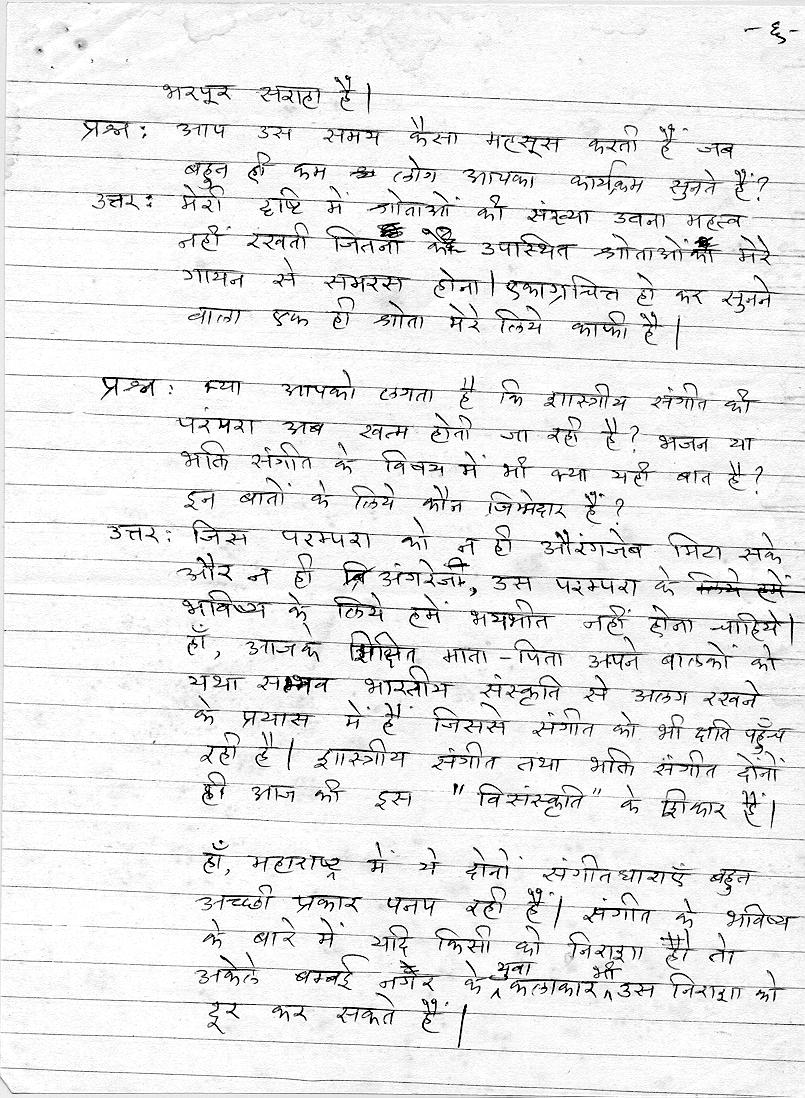 -६-
भरपूर सराहा है|
प्रश्न: आप उस समय कैसा महसूस करती हैं जब
बहुत ही कम लोग आपका कार्यक्रम सुनते हैं?
उत्तर: मेरी दृष्टि में श्रोताओं की संख्या उतना महत्व
नहीं रखती जितना कि उपस्थित श्रोताओं का मेरे
गायन से समरस होना| एकाग्रचित्त हो कर सुनने
वाला एक ही श्रोता मेरे लिये काफी है|
प्रश्न: क्या आपको लगता है कि शास्त्रीय संगीत की
परंपरा अब खत्म होती जा रही है? भजन या
भक्ति संगीत के विषय में भी क्या यही बात है?
इन बातों के लिये कौन जिम्मेदार हैं?
उत्तर: जिस परम्परा को न ही औरंगजेब मिटा सके
और न ही अंगरेजी, उस परम्परा के लिये हमें
भविष्य के लिये हमें भयभीत नहीं होना चाहिये|
हाँ, आजके शिक्षित माता-पिता अपने बालकों को
यथा सम्भव भारतीय संस्कृति से अलग रखने
के प्रयास में हैं जिससे संगीत को भी क्षति पहुँच
रही है| शास्त्रीय संगीत तथा भक्ति संगीत दोंनों
ही आज की इस "विसंस्कृति" के शिकार हैं|
हाँ, महाराष्ट्र में ये दोनों संगीतधाराएँ बहुत
अच्छी प्रकार पनप रही हैं| संगीत के भविष्य
के बारे में यदि किसी को निराशा हो तो
अकेले बम्बई नगर के युवा कलाकार भी उस निराशा को
दूर कर सकते हैं|